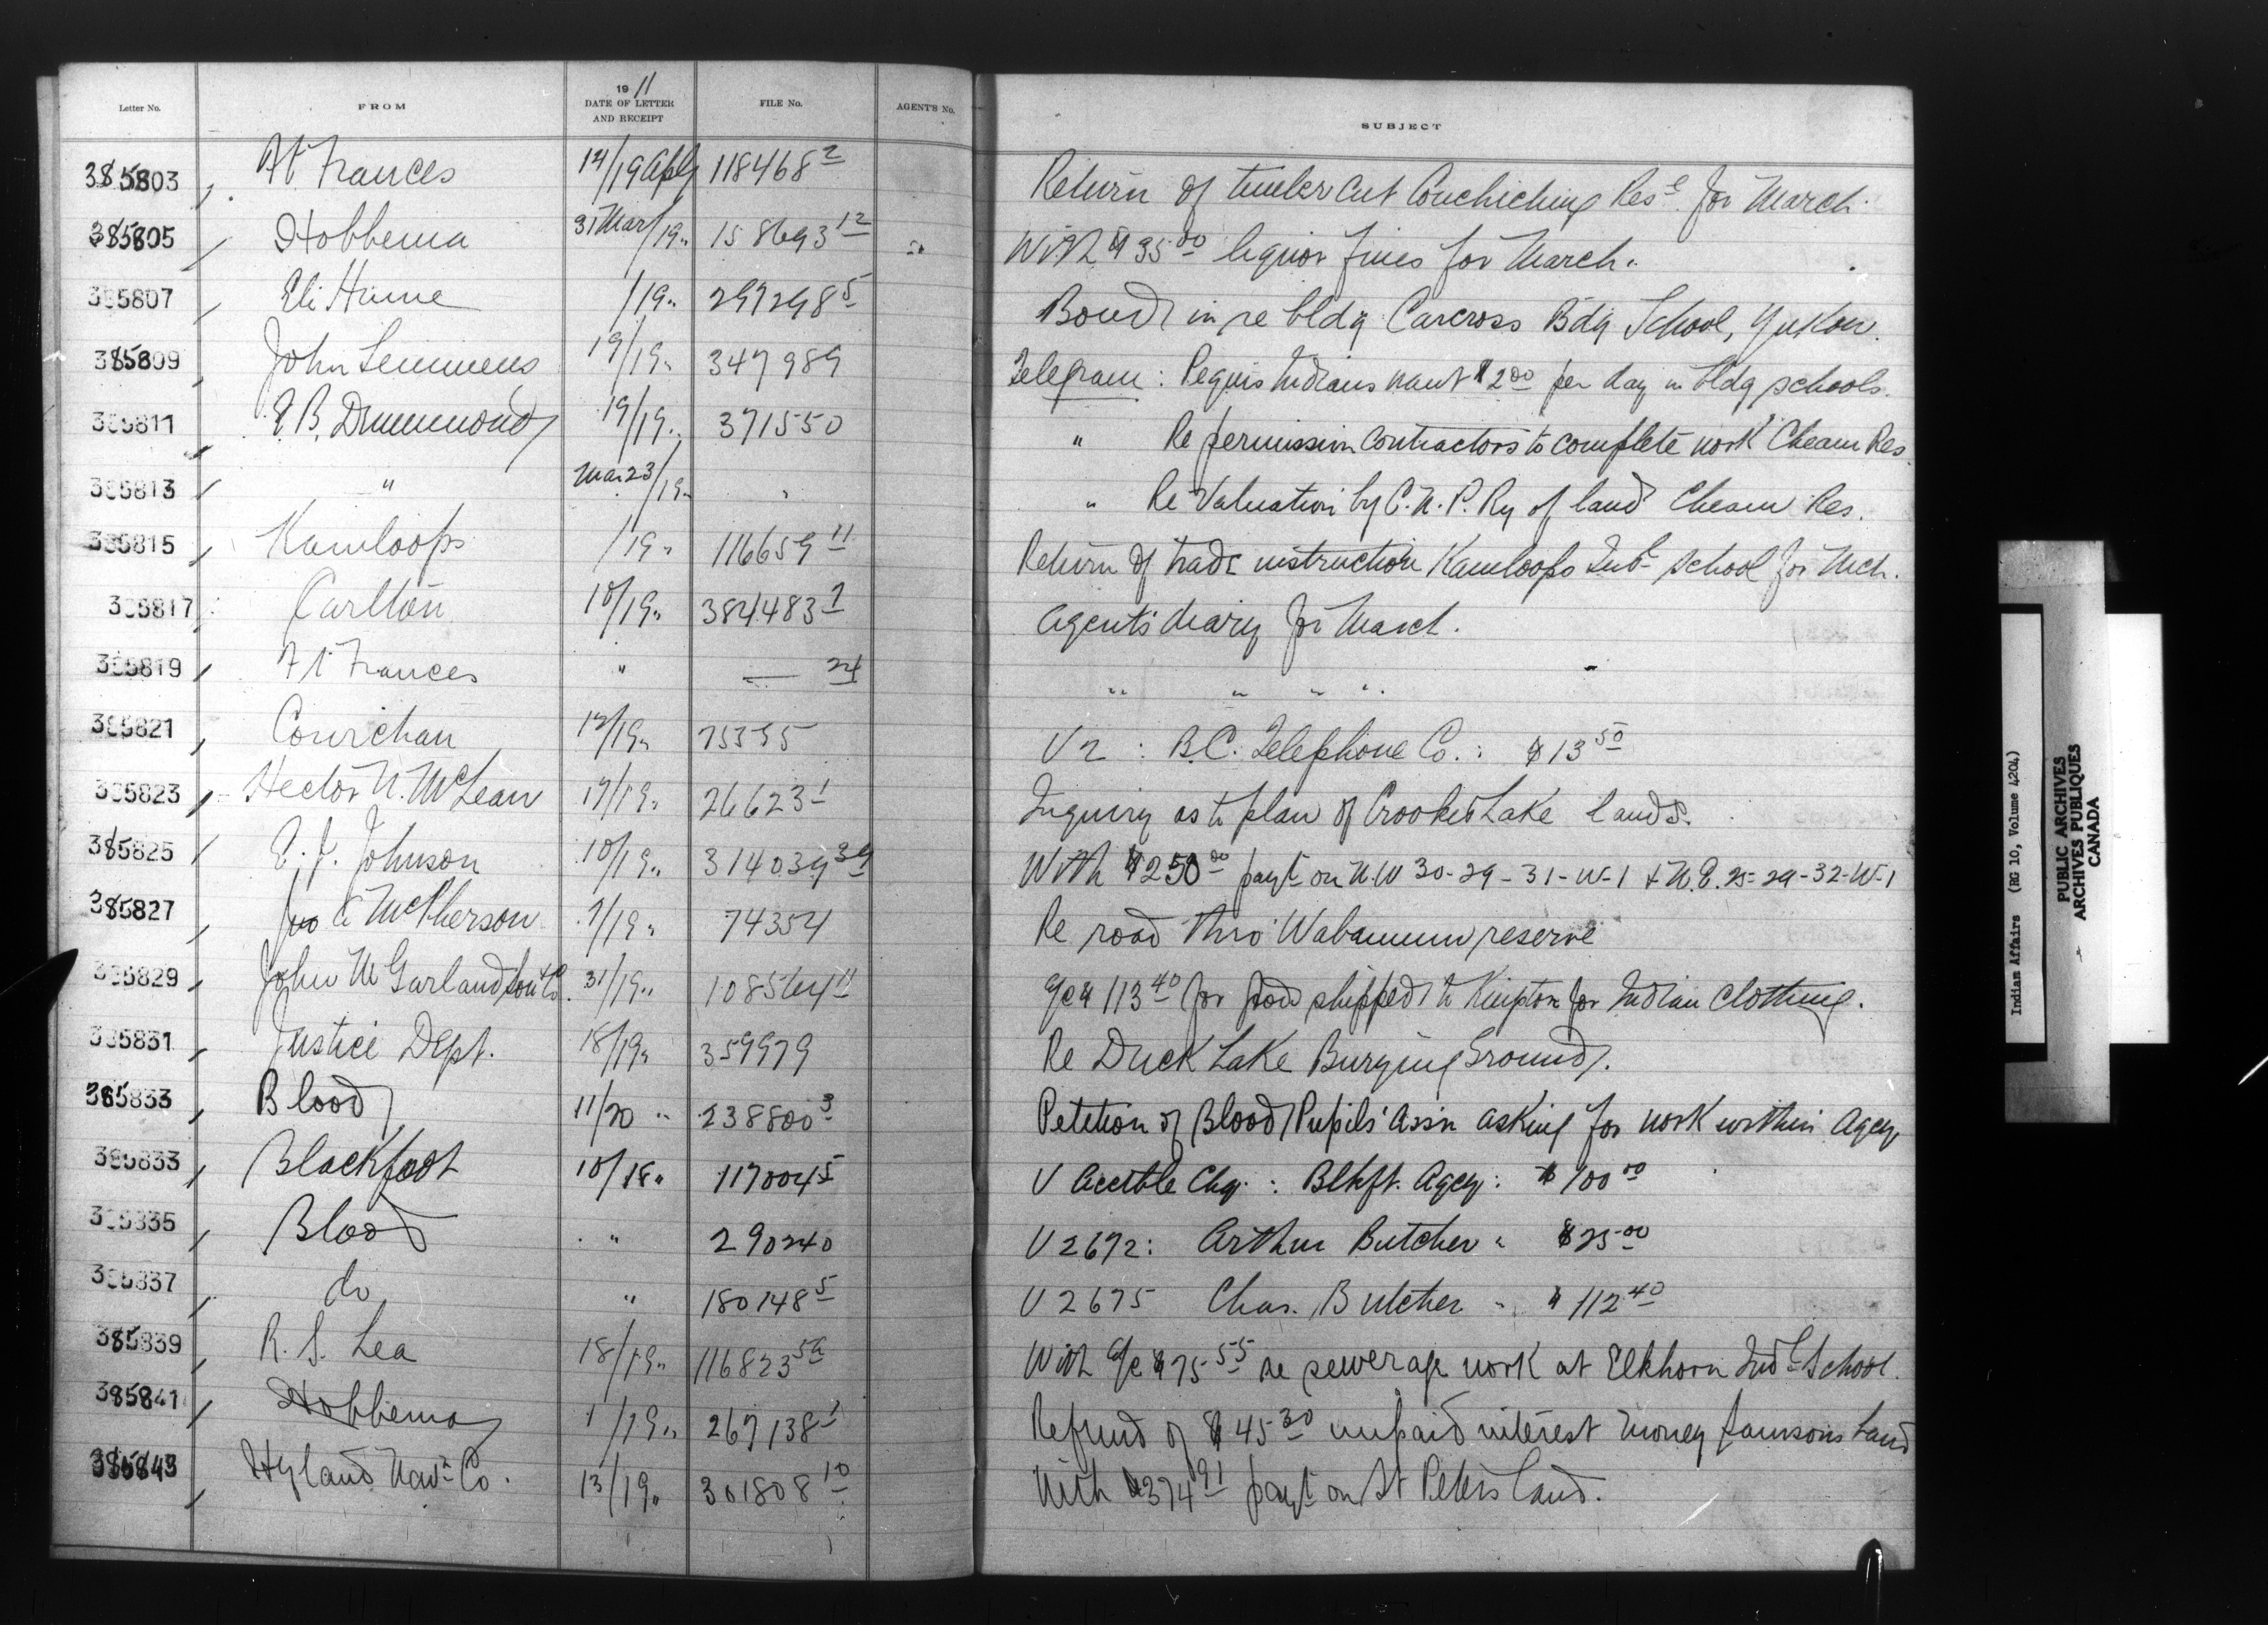 Letter No. FROM 1911 DATE OF LETTER AND RECEIPT FILE No. AGENT'S No. SUBJECT
385803 Ft Frances 14/19 Aply 118468 2 Return of timber cut Couchiching Rese for March
385805 Hobbema 31 Mar/19 " 158693 12 With $35 00 liquor fines for March.
385807 Eli Hume /19 " 297298 5 Bond in re bldg Carcross Bdg School, Yukon.
385809 John Semmens 19/19 " 347989 Telegram : Peguis Indians want $2 00 per day in bldg schools.
385811 E. B. Drummond 19/19 " 371550 " Re permission contractors to complete work Cheam Res.
385813 " Mar 23/19 " " " Re Valuation by C. N. P. Ry of land Cheam Res.
385815 Kamloops /19 " 116659 11 Return of trade instruction Kamloops Indl School for Mch.
385817 Carlton 10/19 " 384483 1 Agent's diary for March.
385819 Ft Frances " — 24 " " " "
385821 Cowichan 12/19 " 75355 V 2 : B.C. Telephone Co. : $13 50
385823 Hector N. McLean 17/19 " 26623 1 Inquiry as to plan of Crooked Lake lands.
385825 E. J. Johnson 10/19 " 314039 39 With $250 00 payt on N.W 30-29-31-W-1 & N.E. 25-29-32-W-1
385827 Jno A McPherson 7/19 " 74354 Re road thro' Wabamum reserve
385829 John M Garland Son & Co. 31/19 " 108564 11 a/c $113 40 for goods shipped to Kingston for Indian Clothing.
385831 Justice Dept. 18/19 " 359979 Re Duck Lake Burying Ground.
385833 Blood 11/20 " 238800 3 Petition of Blood Pupils' Assn asking for work within Agcy
385833 Blackfoot 10/18 " 117004 5 V Acctble Chq. : Blkft. Agcy : $100 00
385835 Blood " 290240 V 2672 : Arthur Butcher " $25 00
385837 do " 180148 5 V 2675 Chas. Butcher " " 112 40
385839 R. S. Lea 18/19 " 116823 5a With a/c $75 55 re sewerage work at Elkhorn Indl School.
385841 Hobbema 1/19 " 267138 1 Refund of $45 30 unpaid interest money Samsons Land
385843 Hyland Navn Co. 13/19 " 301808 10 With $374 91 payt on St Peters land.
Indian Affairs (RG 10, Volume 4204)
PUBLIC ARCHIVES
ARCHIVES PUBLIQUES
CANADA